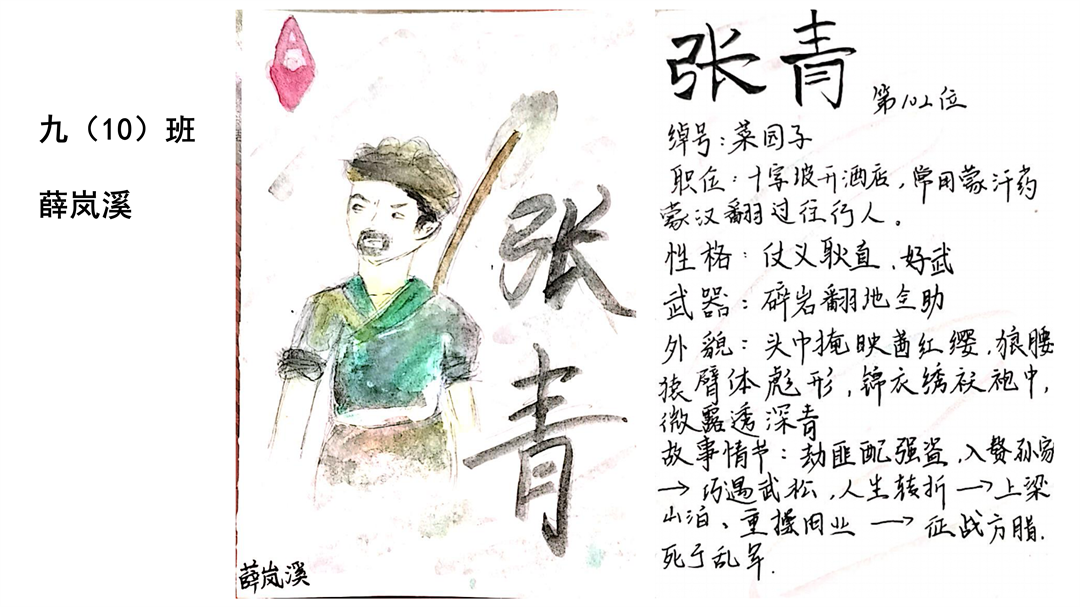 九（10）班
薛岚溪
张青
薛岚溪
张青
第102位
绰号：菜园子
职位：十字坡开酒店，常用蒙汗药
蒙汉翻过往行人。
性格：仗义耿直、好武
武器：碎岩翻地全助
外貌：头巾掩映茜红缨，狼腰
猿臂体彪形，锦衣绣袄袍中，
微露透深青
故事情节：劫匪配强盗，入赘孙家
→巧遇武松，人生转折→上梁
山泊、重操旧业→征战方腊.
死于乱军.